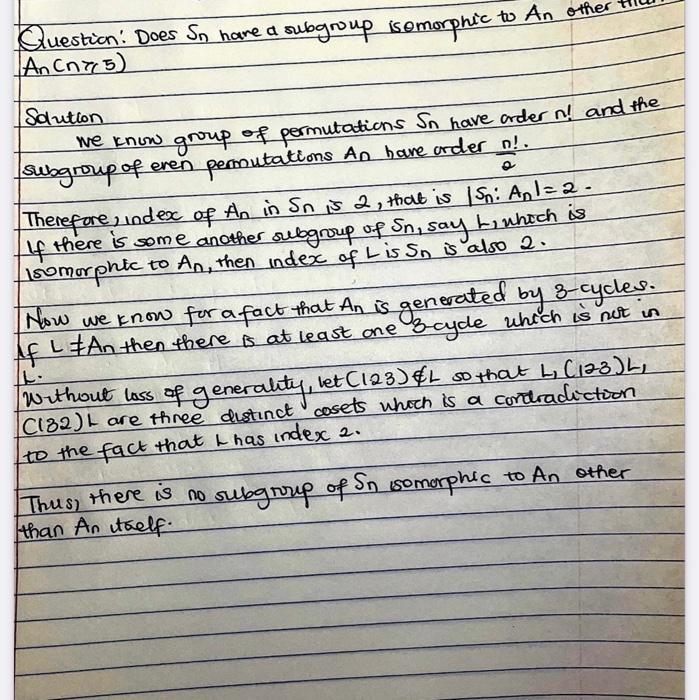 Question: Does Sn have a subgroup isomorphic to An other than
An (n ≥ 5)
Solution
We know group of permutations Sn have order n! and the
subgroup of even permutations An have order n!/2.
Therefore, index of An in Sn is 2, that is |Sn: An| = 2.
If there is some another subgroup of Sn, say L, which is
isomorphic to An, then index of L is Sn is also 2.
Now we know for a fact that An is generated by 3-cycles.
If L ≠ An then there is at least one 3-cycle which is not in
L.
Without loss of generality, let (123) ∉ L so that L, (123)L,
(132)L are three distinct cosets which is a contradiction
to the fact that L has index 2.
Thus, there is no subgroup of Sn isomorphic to An other
than An itself.